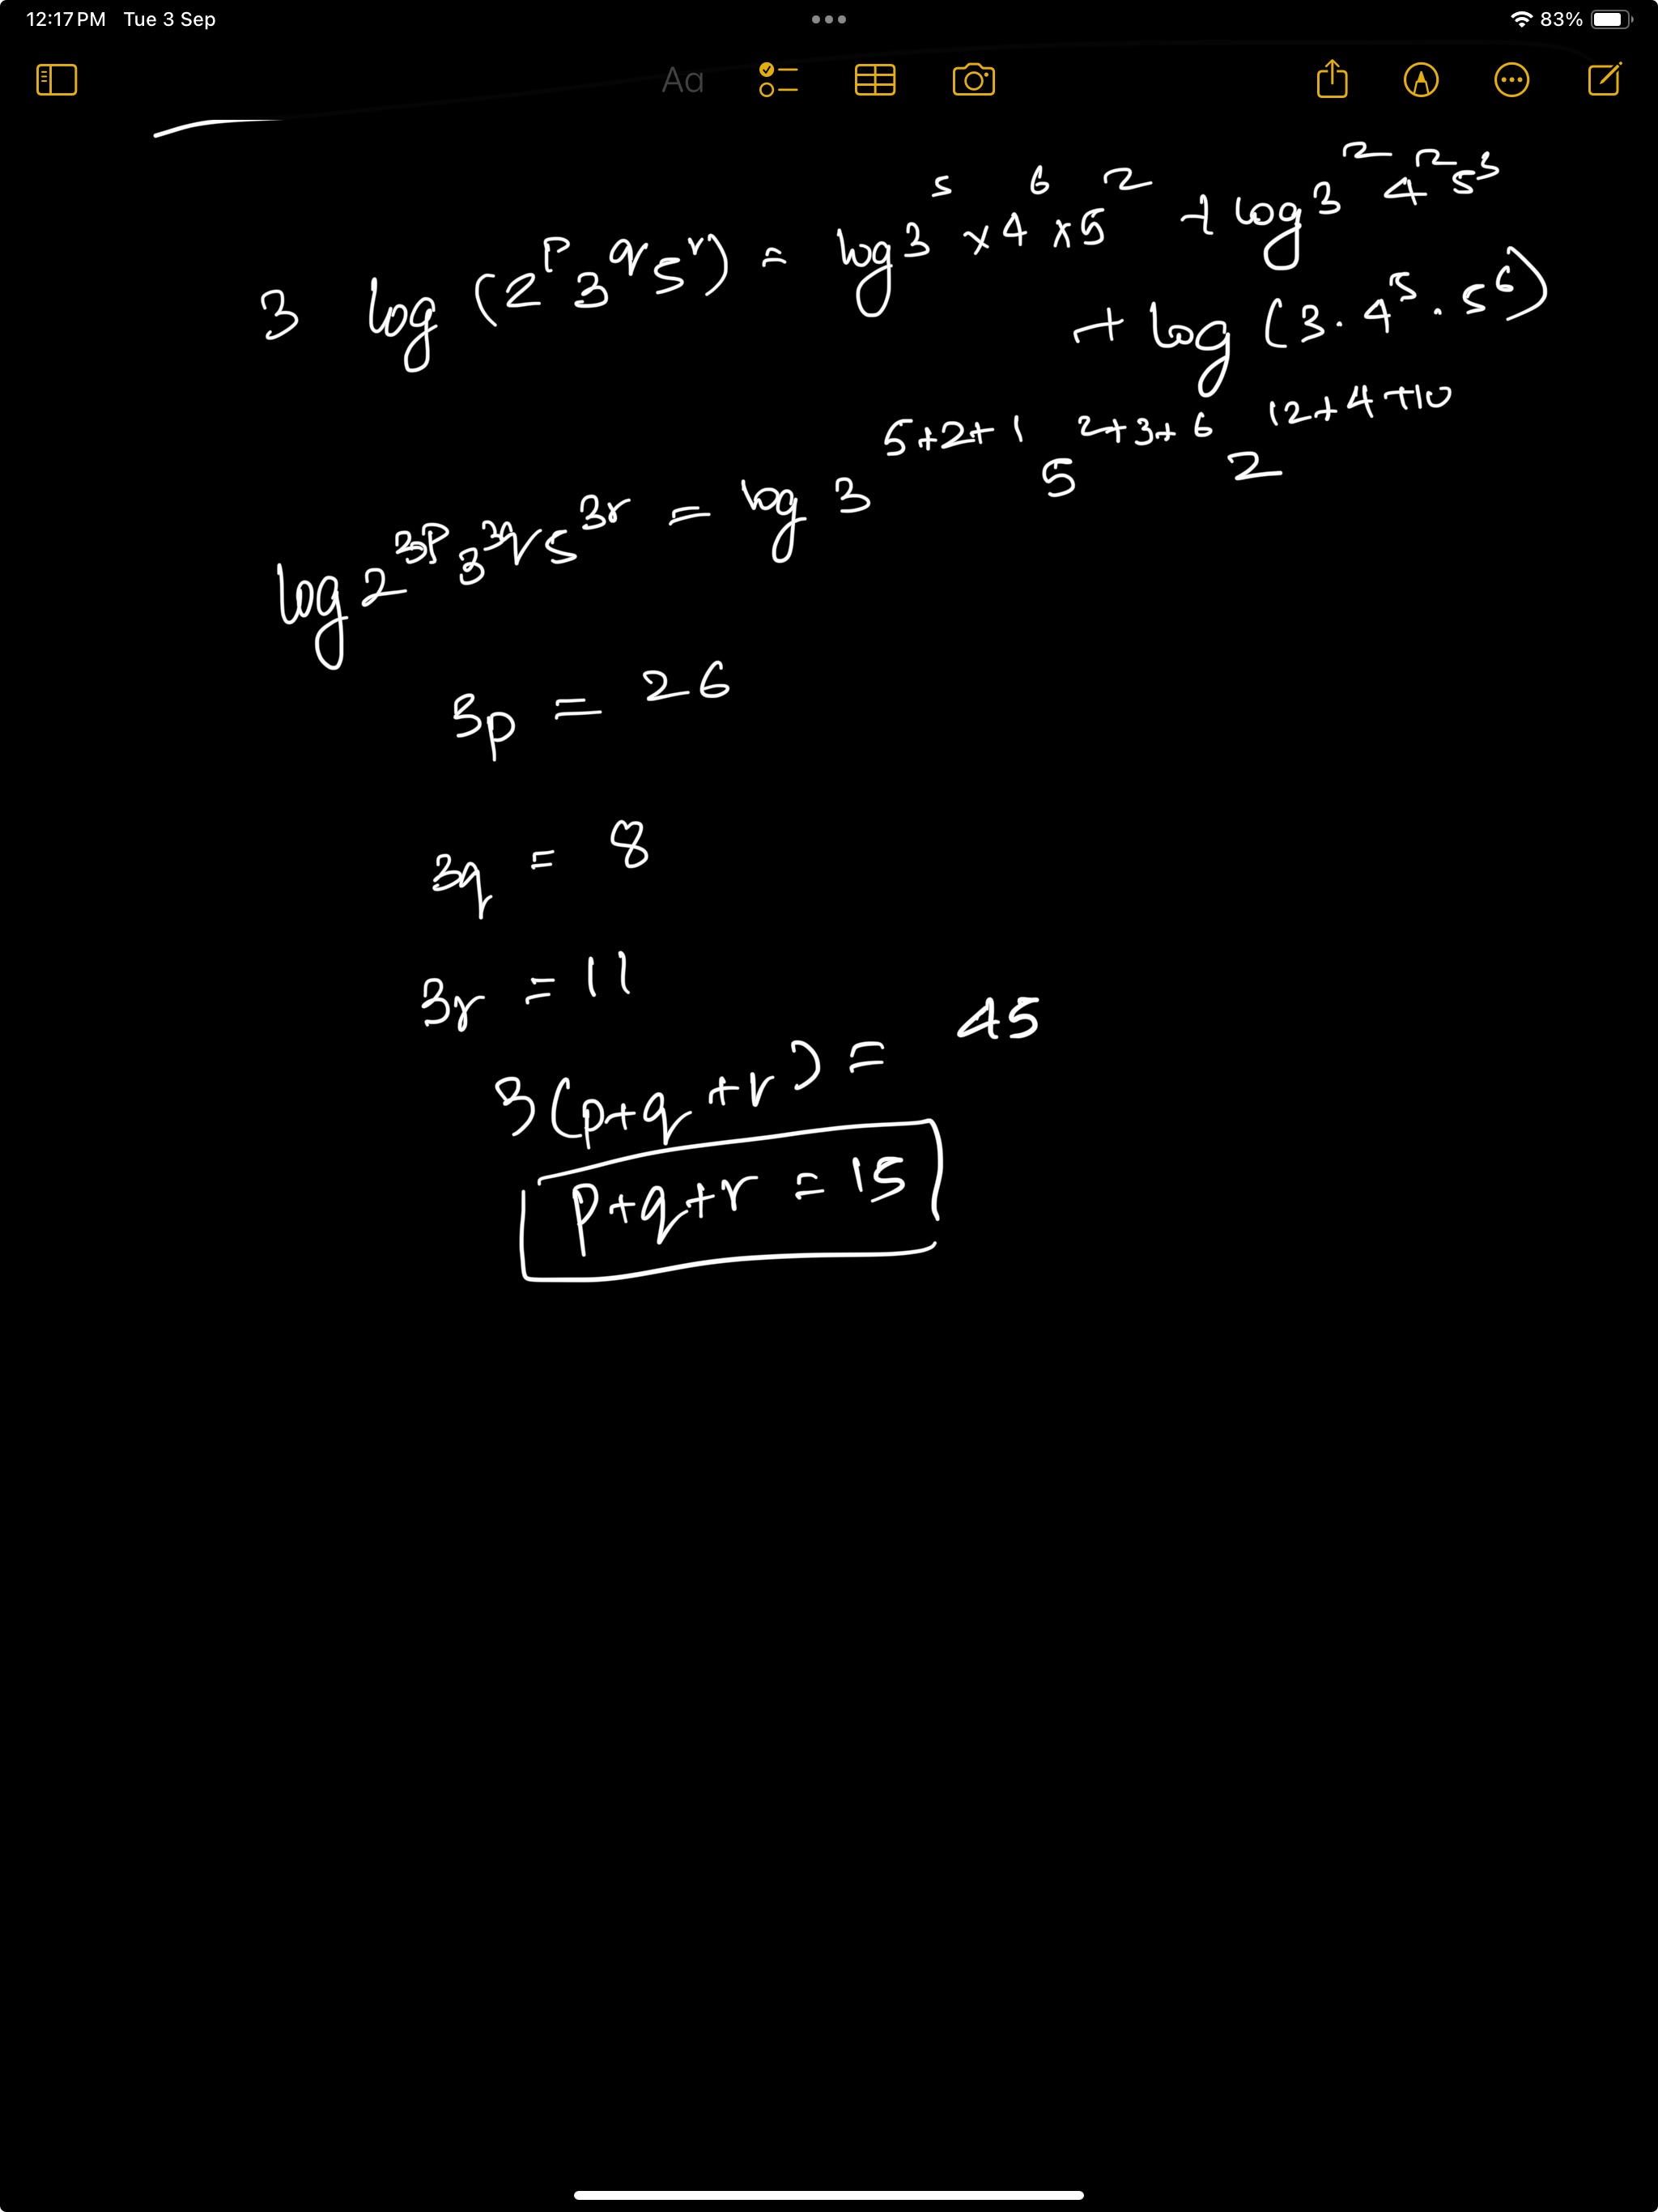 12:17 PM Tue 3 Sep 83%
Aa
3 log (2^p 3^q 5^r) = log 3^5 × 4^6 × 5^2 + log 3^2 4^2 5^3
+ log (3 . 4^5 . 5^6)
log 2^3p 3^3q 5^3r = log 3^5+2+1 5^2+3+6 2^12+4+10
3p = 26
3q = 8
3r = 11
3(p+q+r) = 45
p+q+r = 15